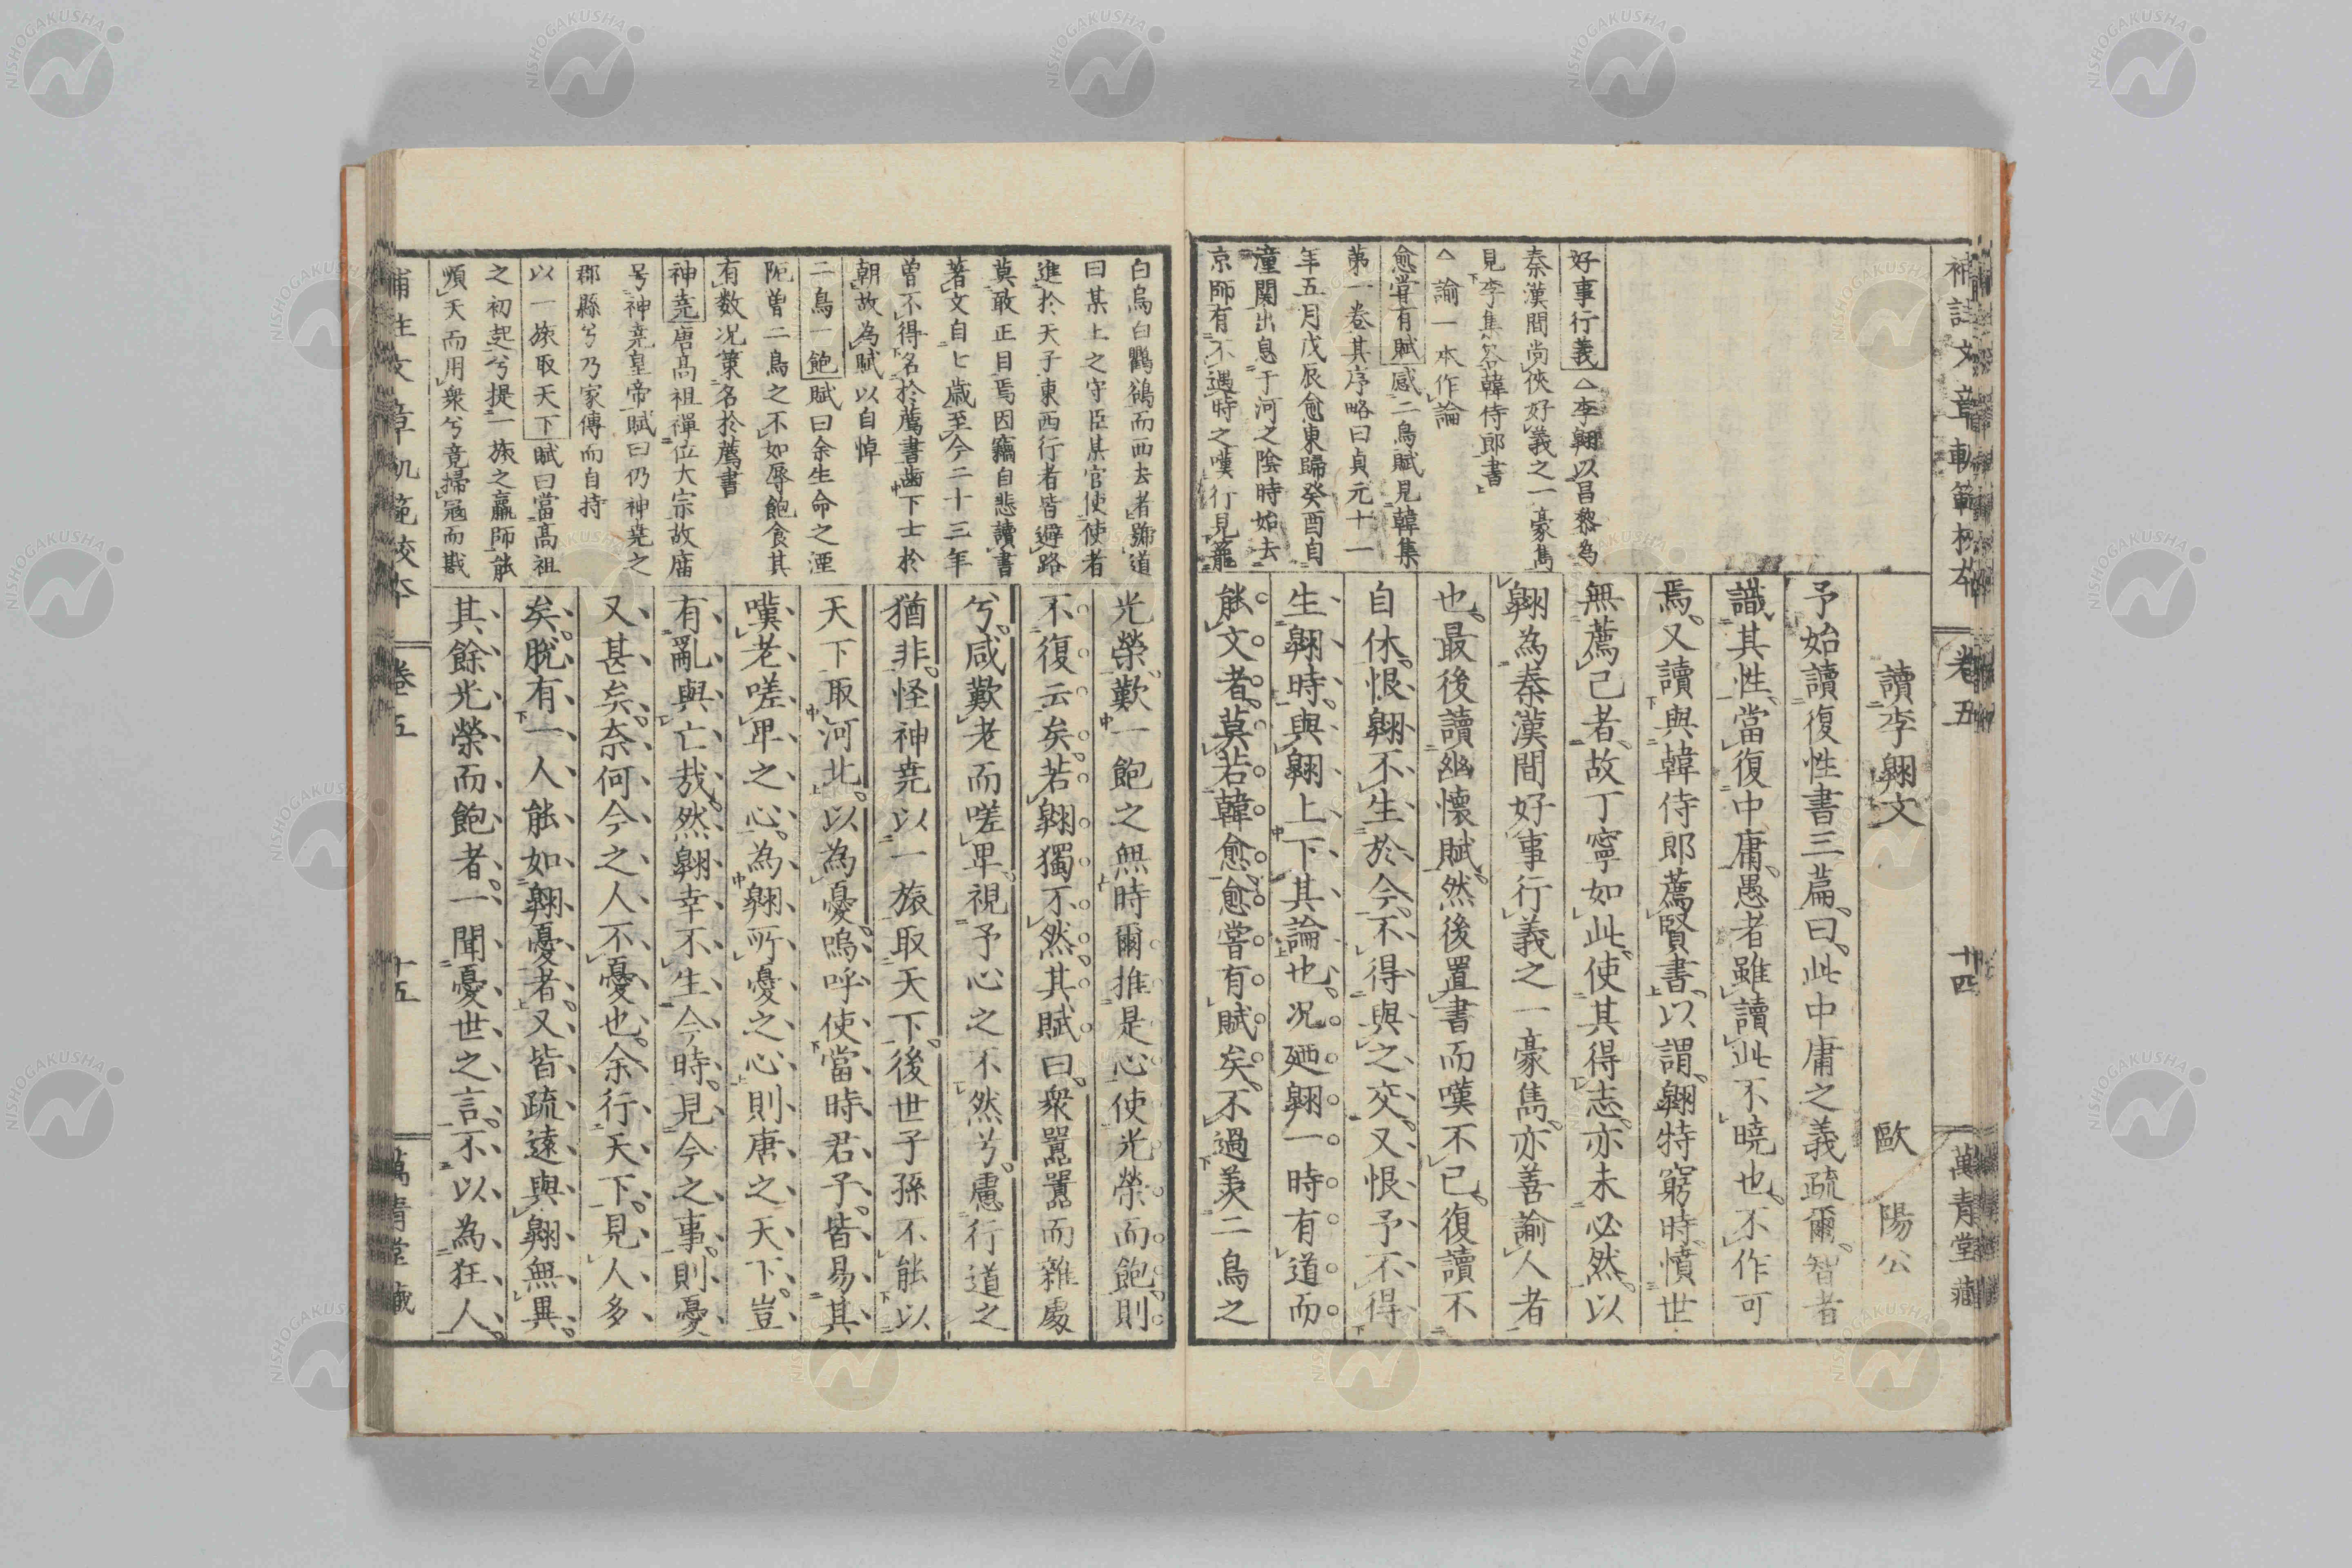 補註文章軌範校本
卷五
十四
萬青堂藏
好事行義 李翺以昌黎為
秦漢間尚俠好義之一豪雋
見李集答韓侍郎書
諭一本作論
愈嘗有賦 感二鳥賦見韓集
第一卷其序略曰貞元十一
年五月戊辰愈東歸癸酉自
潼關出息于河之陰時始去
京師有不遇時之嘆行見籠
讀李翺文
歐陽公
予始讀復性書三篇曰此中庸之義疏爾智者
識其性當復中庸愚者雖讀此不曉也不作可
焉又讀與韓侍郎薦賢書以謂翺特窮時憤世
無薦己者故丁寧如此使其得志亦未必然以
翺為秦漢間好事行義之一豪雋亦善諭人者
也最後讀幽懷賦然後置書而嘆不已復讀不
自休恨翺不生於今不得與之交又恨予不得
生翺時與翺上下其論也况廼翺一時有道而
能文者莫若韓愈愈嘗有賦矣不過羨二鳥之
白烏白鸜鵒而西去者號道
曰某土之守臣某官使使者
進於天子東西行者皆避路
莫敢正目焉因竊自悲讀書
著文自七歲至今二十三年
曽不得名於薦書齒下士於
朝故為賦以自悼
二鳥一飽 賦曰余生命之湮
阨曽二鳥之不如辱飽食其
有数况策名於薦書
神堯 唐高祖禪位大宗故庿
号神堯皇帝賦曰仍神堯之
郡縣兮乃家傳而自持
以一旅取天下 賦曰當高祖
之初起兮提一旅之羸師能
順天而用衆兮竟掃冦而戡
光榮歎一飽之無時爾推是心使光榮而飽則
不復云矣若翺獨不然其賦曰衆囂囂而雜處
兮咸歎老而嗟卑視予心之不然兮慮行道之
猶非怪神堯以一旅取天下後世子孫不能以
天下取河北以為憂嗚呼使當時君子皆易其
嘆老嗟卑之心為翺所憂之心則唐之天下豈
有亂與亡哉然翺幸不生今時見今之事則憂
又甚矣奈何今之人不憂也余行天下見人多
矣脫有一人能如翺憂者又皆疏遠與翺無異
其餘光榮而飽者一聞憂世之言不以為狂人
補註文章軌範校本
卷五
十五
萬青堂藏
NISHOGAKUSHA